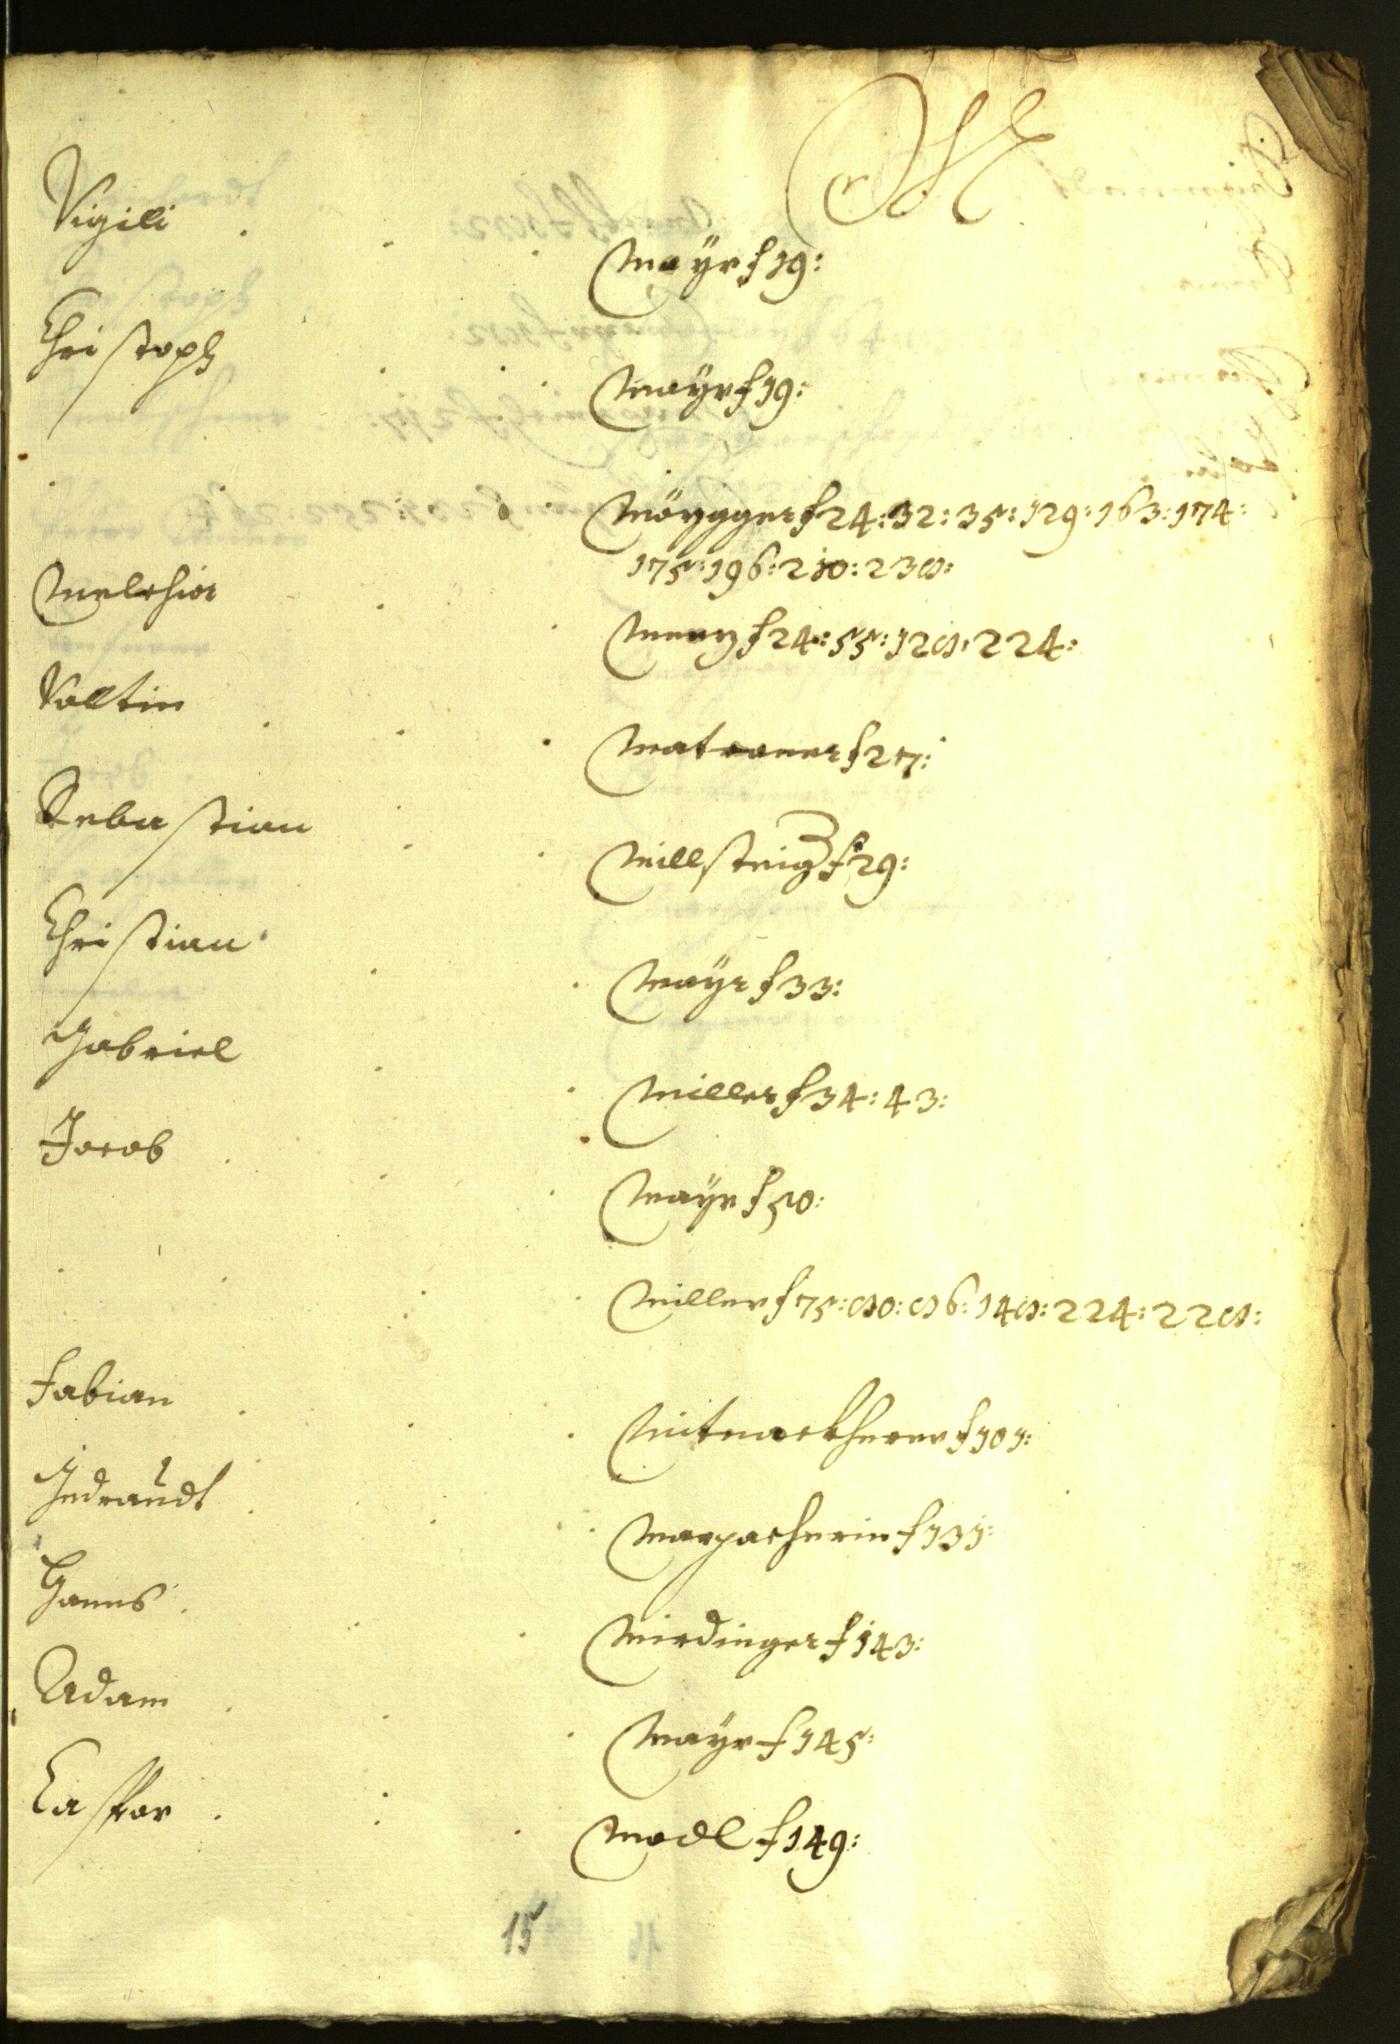 M
Vigili Mayr f 19:
Christoph Mayr f 19:
Mözgger f 24: 32: 35: 129: 163: 174:
175: 196: 210: 238:
Melchior Menz f 24: 55: 128: 224:
Valtin Matraner f 27:
Sebastian Millsteig f 29:
Christian Mayr f 33:
Gabriel Miller f 34: 43:
Jacob Mayr f 50:
Miller f 75: 80: 86: 148: 224: 228:
Fabian Mitnackherer f 101:
Gedraudt Marpacherin f 131:
Hanns Mirdinger f 143:
Adam Mayr f 145:
Caspar Madl f 149:
15